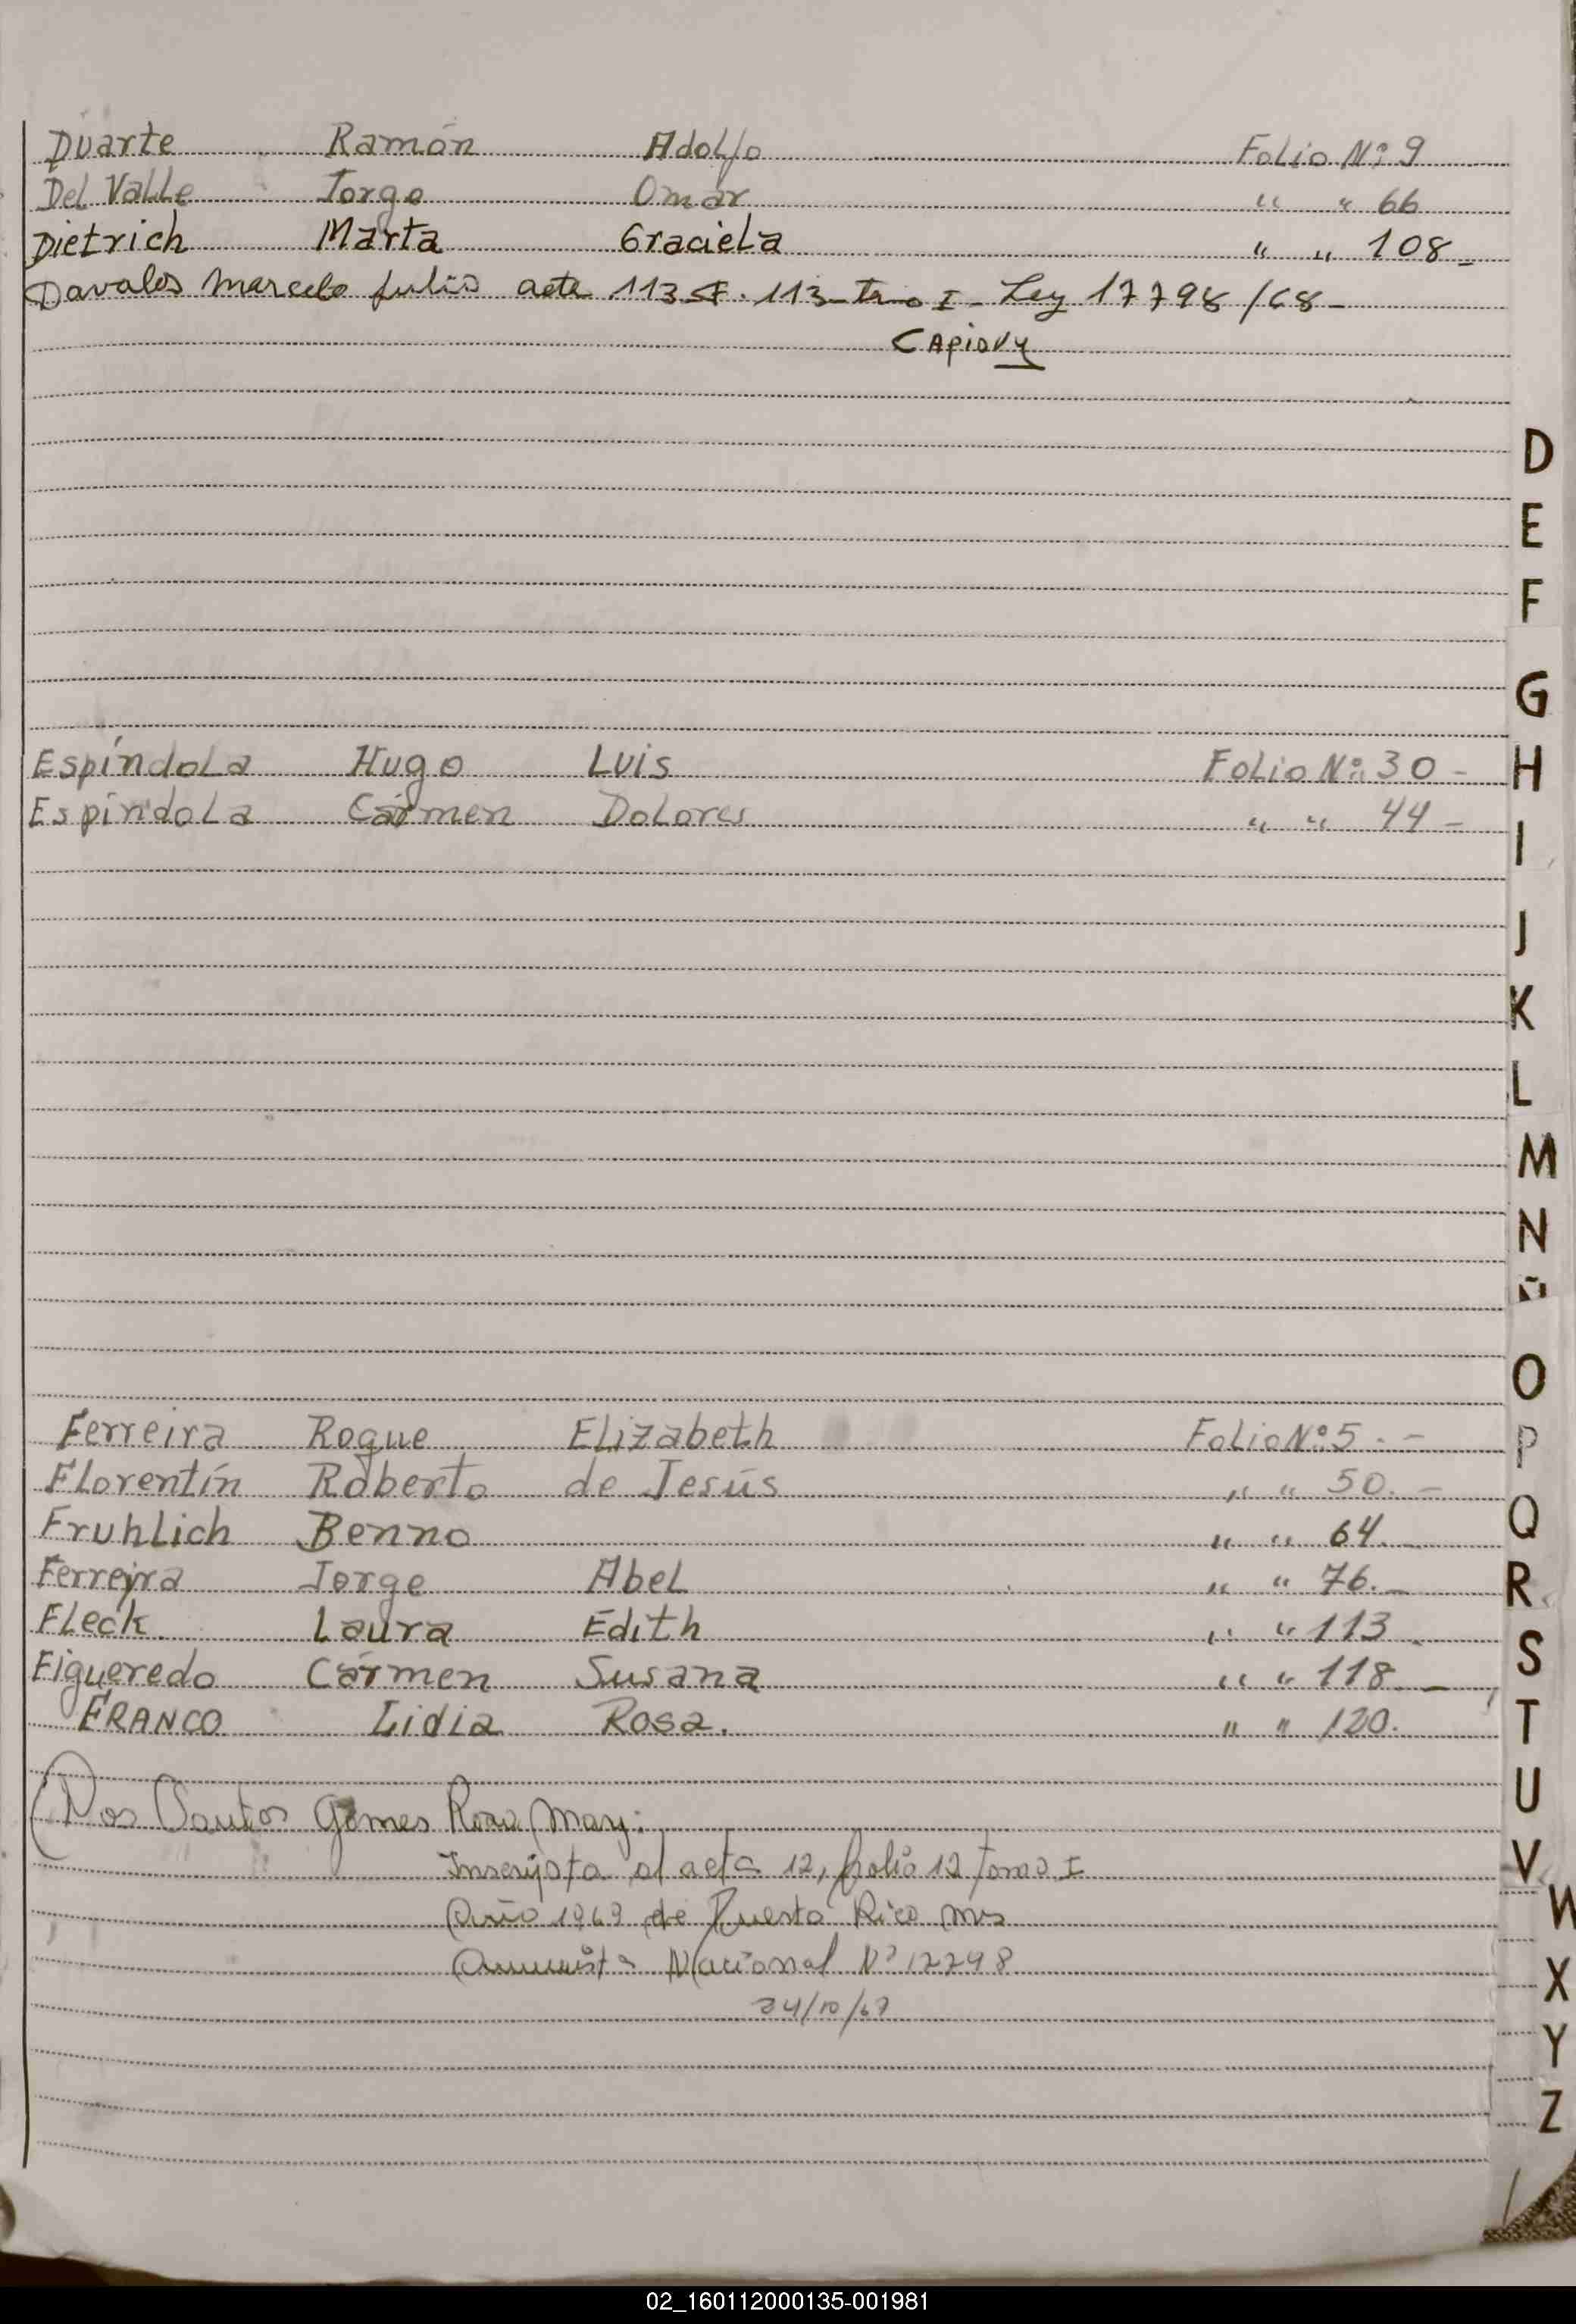 Duarte Ramón Adolfo Folio Nº 9
Del Valle Jorge Omar " " 66
Dietrich Marta Graciela " " 108_
Davalos Marcelo Julio acta 113 F. 113 Tomo I - Ley 17798/68 -
CApiovy
D
E
F
G
Espíndola Hugo Luis Folio Nº 30 - H
Espíndola Cármen Dolores " " 44 -
I
J
K
L
M
N
Ñ
O
Ferreira Roque Elizabeth Folio Nº 5. - P
Florentín Roberto de Jesús " " 50. -
Fruhlich Benno " " 64. - Q
Ferreyra Jorge Abel " " 76. - R
Fleck Laura Edith " " 113 -
Figueredo Cármen Susana " " 118. - S
FRANCO Lidia Rosa. " " 120. T
U
Dos Santos Gomes Rosa Mary:
Inscripta al acta 12, folio 12 Tomo I V
Año 1969 de Puerto Rico Mns W
Amnistia Nacional Nº 17798 X
24/10/67
Y
Z
02_160112000135-001981